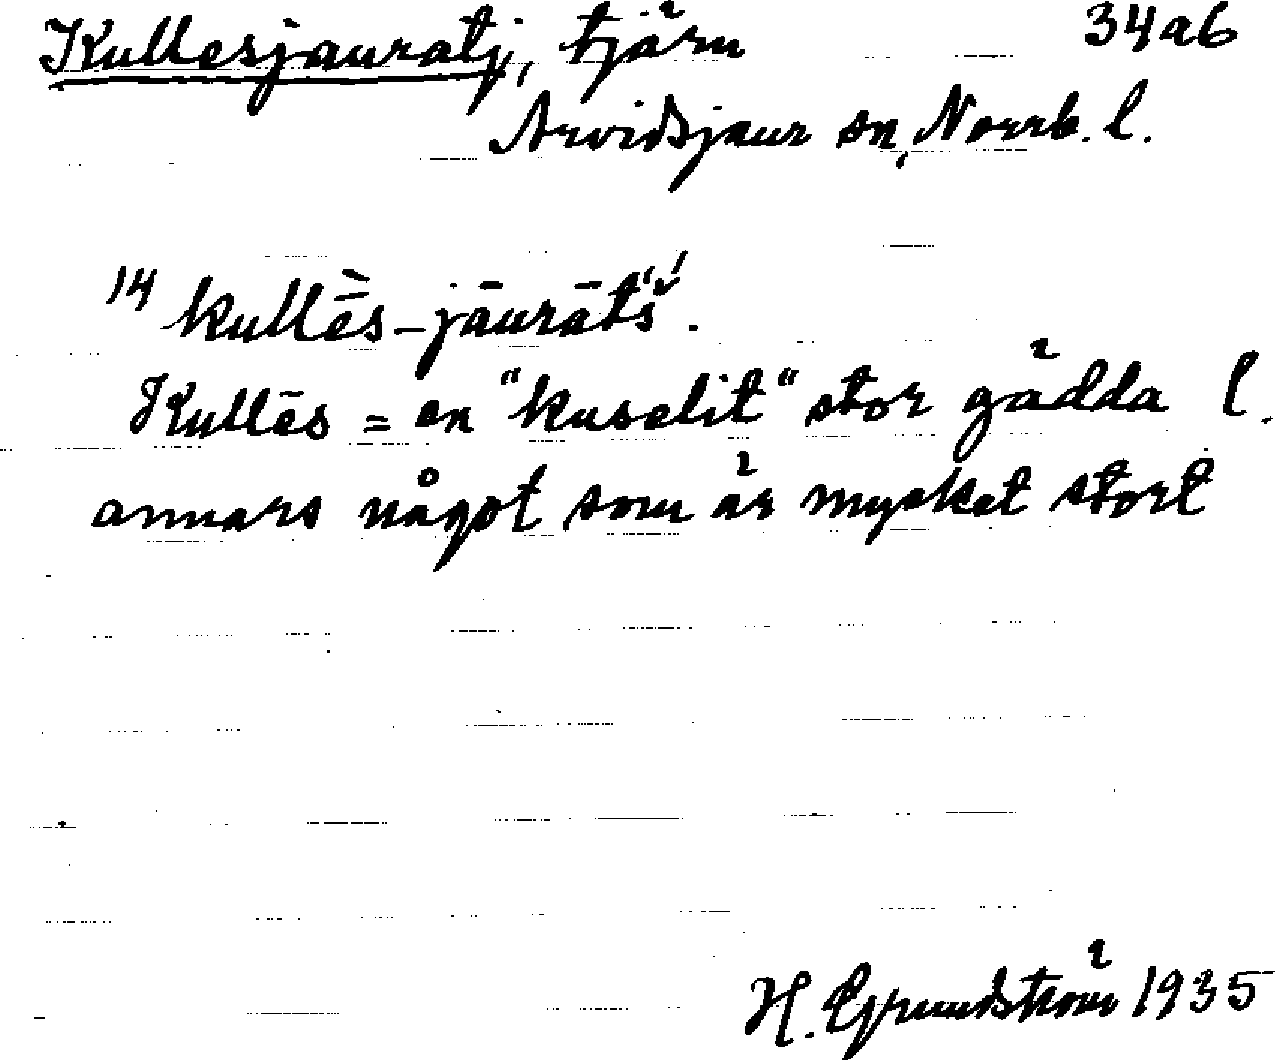 Kullesjauratj, tjärn 34ab
Arvidsjaur sn, Norrb. l.
14 kullḕs-jāurātš́!.
Kullēs = en "kuselit" stor gädda l.
annars något som är mycket stort
H. Grundström 1935